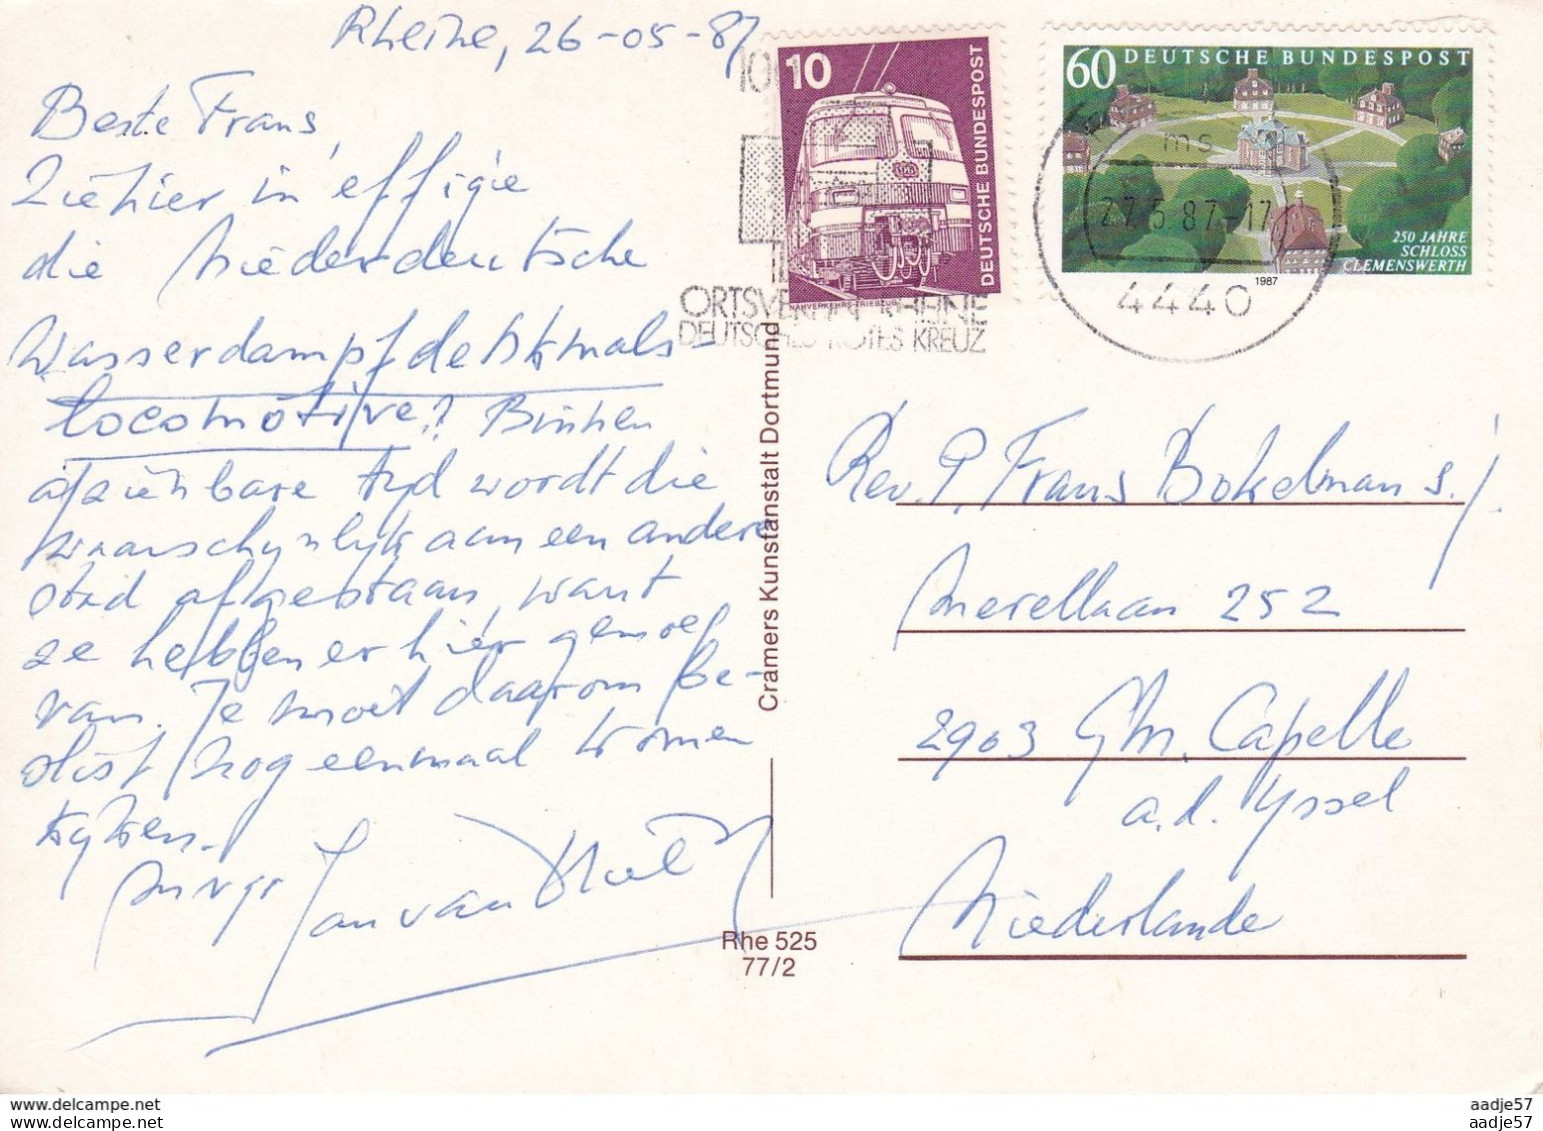 Rheine, 26-05-87
Beste Frans,
Ziehier in effigie
die Niederdeutsche
Wasserdampfdenkmals-
locomotive? Binnen
afzienbare tyd wordt die
waarschynlyk aan een andere
stad afgestaan, want
ze hebben er hier genoeg
van. Je moet daarom be-
slist nog eenmaal komen
kyken.
Jan van
10
DEUTSCHE BUNDESPOST
NAHVERKEHRS-TRIEBZUG
60 DEUTSCHE BUNDESPOST
250 JAHRE
SCHLOSS
CLEMENSWERTH
1987
27.5.87-17
4440
ORTSVEREIN RHEINE
DEUTSCHES ROTES KREUZ
Cramers Kunstanstalt Dortmund
Rhe 525
77/2
Rev. P. Frans Bokelman s.j.
Merellaan 252
2903 Capelle
a.d. Yssel
Niederlande
aadje57
aadje57
aadje57
aadje57